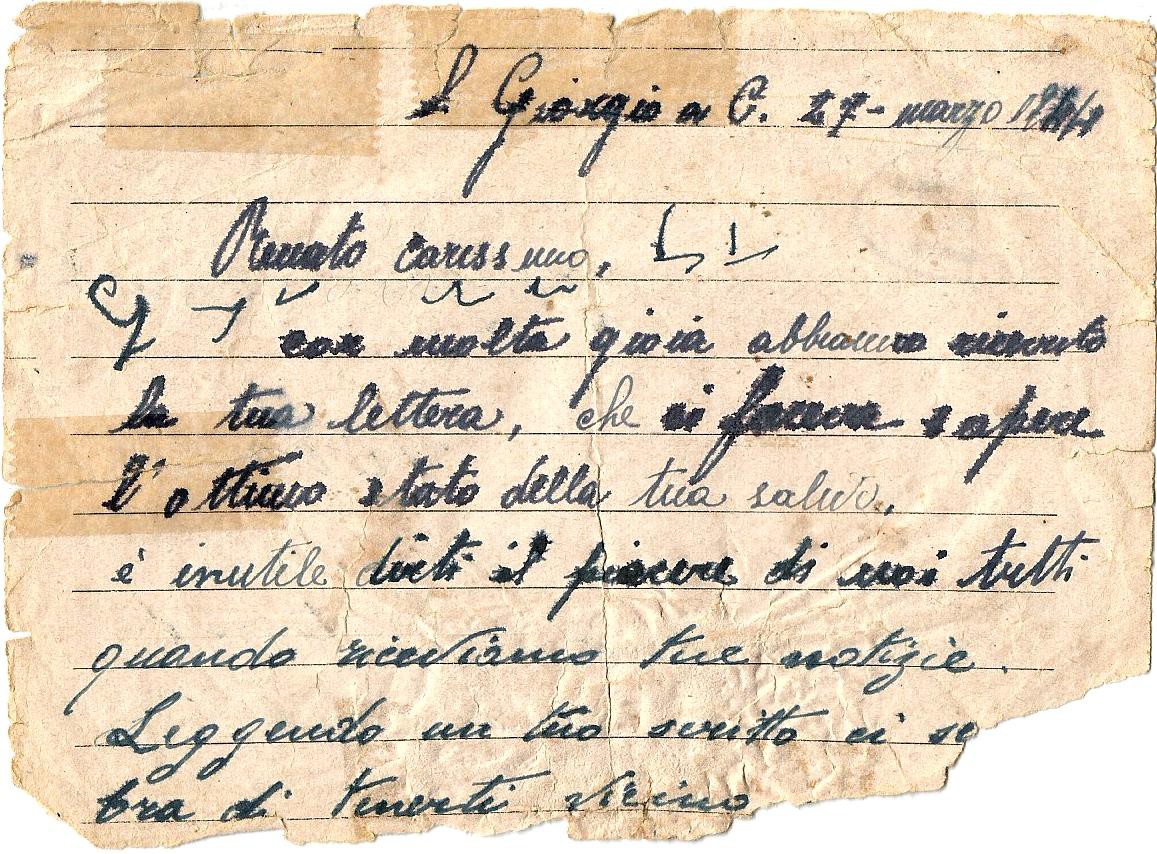 S. Giorgio a C. 27 - marzo 1944
Renato carissimo,
con molta gioia abbiamo ricevuto
la tua lettera, che ci faceva sapere
l'ottimo stato della tua salute,
è inutile dirti il piacere di noi tutti
quando riceviamo tue notizie.
Leggendo un tuo scritto ci se
bra di tenerti vicino